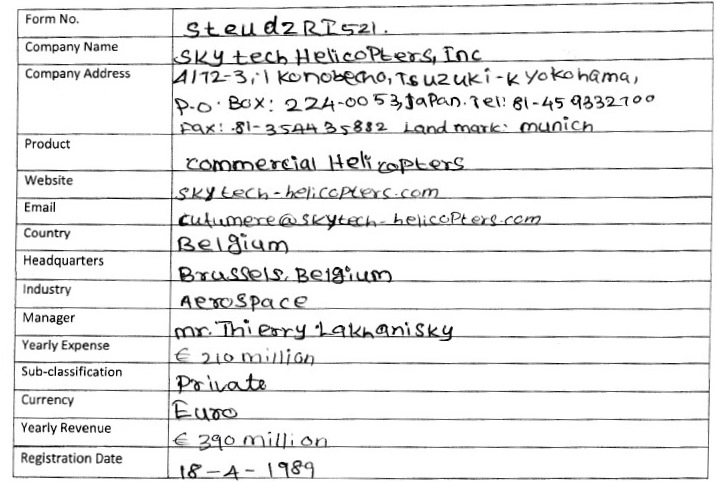 Form No. Steudz RI521.
Company Name Sky tech Helicopters, Inc
Company Address A/72-3, 1 Konobecho, Tsuzuki-k Yokohama,
P.O. Box: 224-0053, Japan. Tel: 81-45 9332700
Fax: 81-3544 35882 Landmark: munich
Product commercial Helicopters
Website skytech-helicopters.com
Email cufumere@skytech-helicopters.com
Country Belgium
Headquarters Brussels, Belgium
Industry Aerospace
Manager mr. Thierry Lakhanisky
Yearly Expense € 210 million
Sub-classification Private
Currency Euro
Yearly Revenue € 390 million
Registration Date 18-4-1989